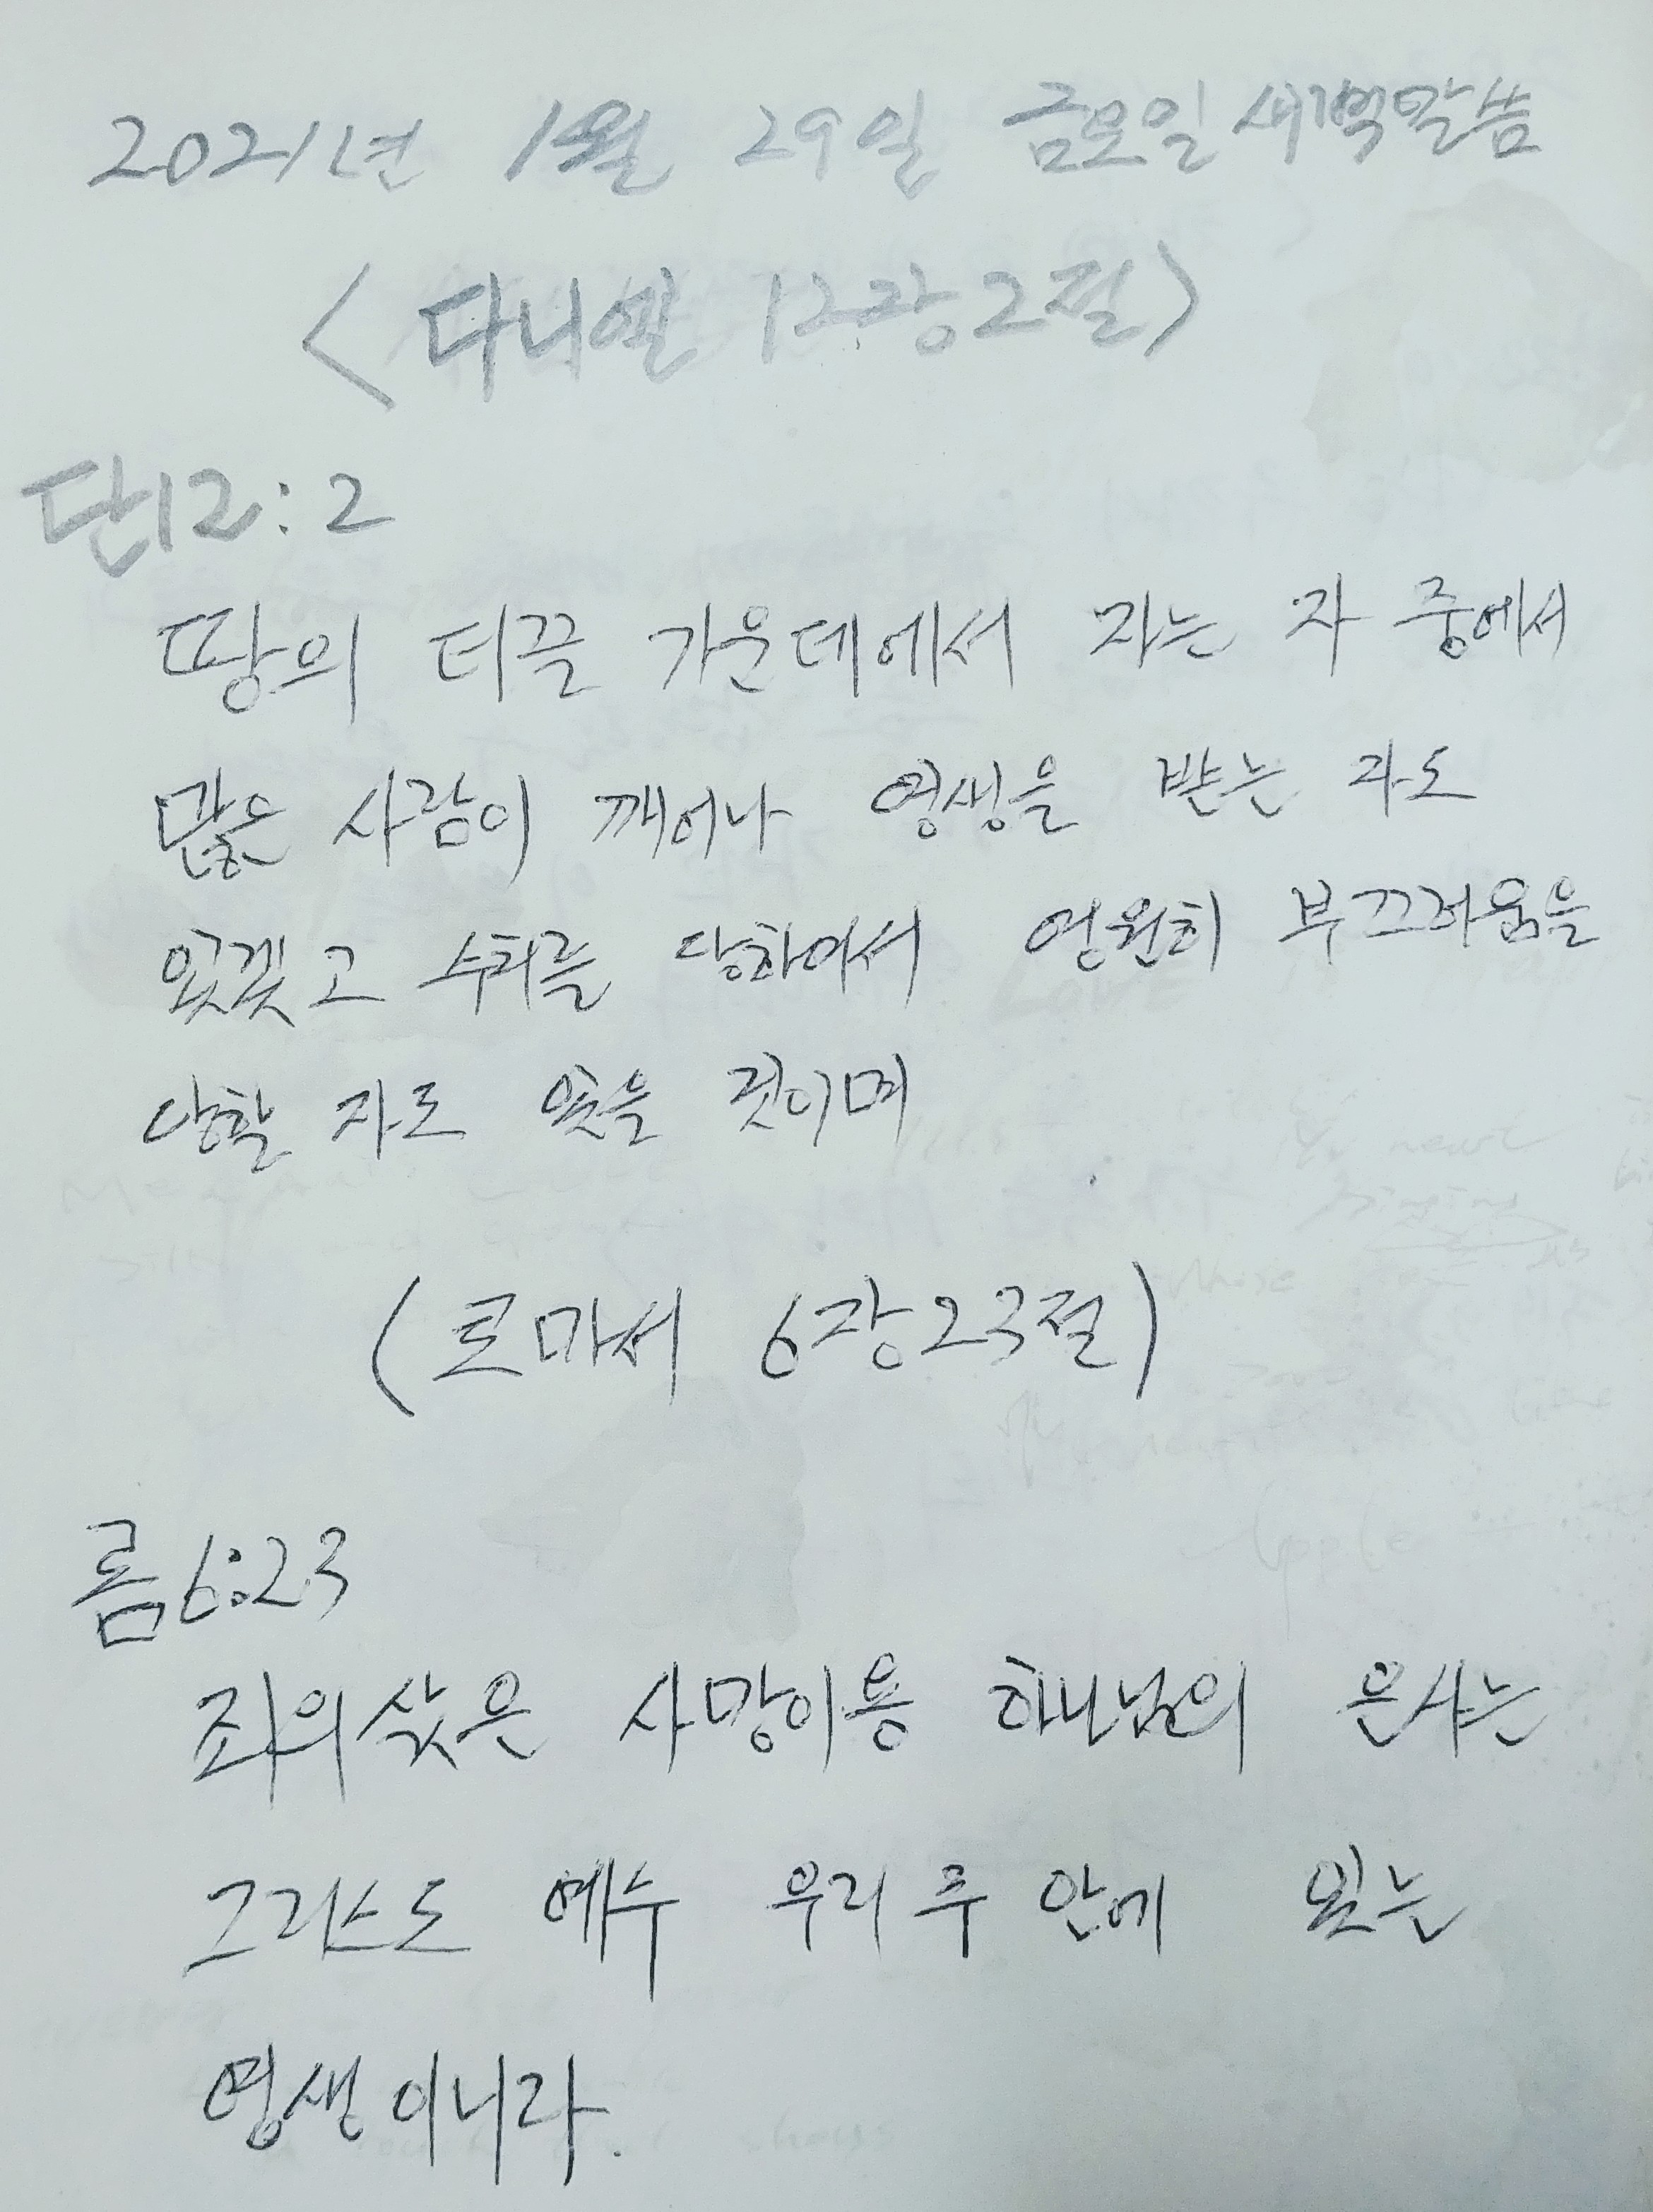 2021년 1월 29일 금요일 새벽말씀
<다니엘 12장 2절>
단12:2
땅의 티끌 가운데에서 자는 자 중에서
많은 사람이 깨어나 영생을 받는 자도
있겠고 수치를 당하여서 영원히 부끄러움을
당할 자도 있을 것이며
(로마서 6장23절)
롬6:23
죄의삯은 사망이용 하나님의 은사는
그리스도 예수 우리 주 안에 있는
영생이니라.